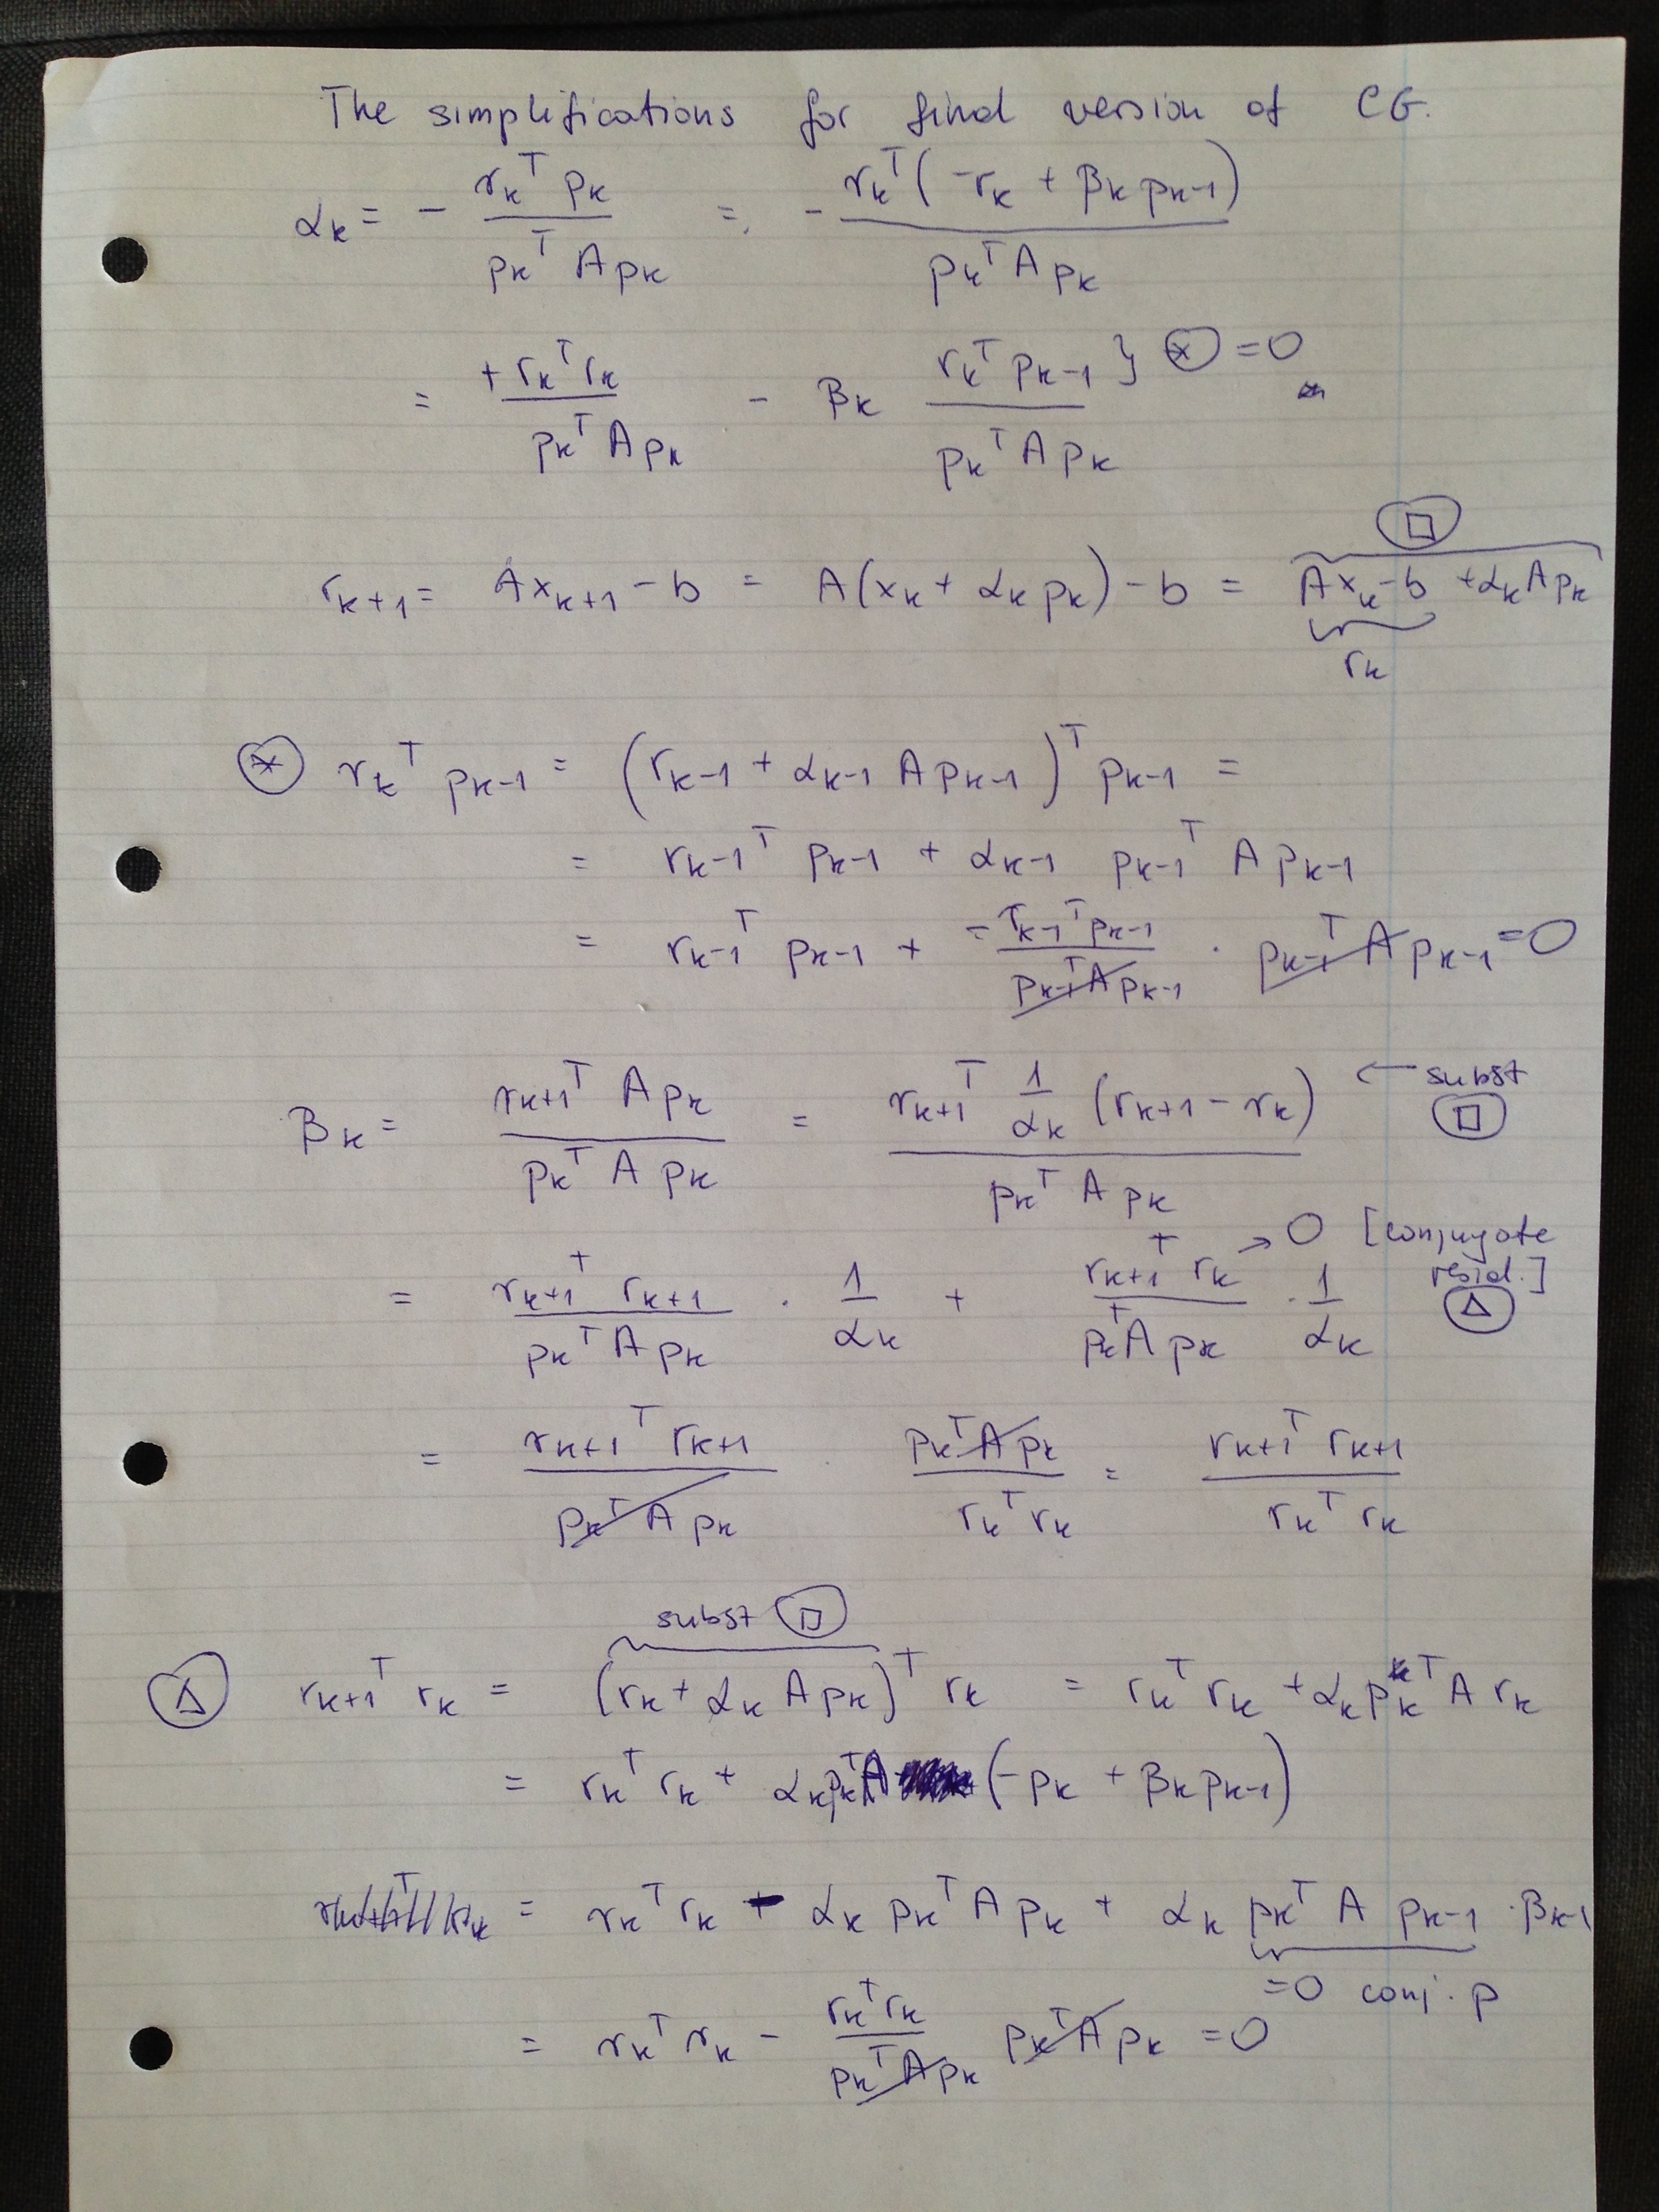 The simplifications for final version of CG.
α_k = - (r_k^T p_k) / (p_k^T A p_k) = - (r_k^T (-r_k + β_k p_{k-1})) / (p_k^T A p_k)
= (+ r_k^T r_k) / (p_k^T A p_k) - β_k (r_k^T p_{k-1}) / (p_k^T A p_k) } ⊛ = 0
□
r_{k+1} = A x_{k+1} - b = A(x_k + α_k p_k) - b = A x_k - b + α_k A p_k
r_k
⊛ r_k^T p_{k-1} = (r_{k-1} + α_{k-1} A p_{k-1})^T p_{k-1} =
= r_{k-1}^T p_{k-1} + α_{k-1} p_{k-1}^T A p_{k-1}
= r_{k-1}^T p_{k-1} + (- r_{k-1}^T p_{k-1}) / (p_{k-1}^T A p_{k-1}) · p_{k-1}^T A p_{k-1} = 0
β_k = (r_{k+1}^T A p_k) / (p_k^T A p_k) = (r_{k+1}^T 1/α_k (r_{k+1} - r_k)) / (p_k^T A p_k) ← subst □
= (r_{k+1}^T r_{k+1}) / (p_k^T A p_k) · 1/α_k + (r_{k+1}^T r_k) / (p_k^T A p_k) · 1/α_k → 0 [conjugate resid.] △
= (r_{k+1}^T r_{k+1}) / (p_k^T A p_k) · (p_k^T A p_k) / (r_k^T r_k) = (r_{k+1}^T r_{k+1}) / (r_k^T r_k)
subst □
△ r_{k+1}^T r_k = (r_k + α_k A p_k)^T r_k = r_k^T r_k + α_k p_k^T A r_k
= r_k^T r_k + α_k p_k^T A (-p_k + β_k p_{k-1})
= r_k^T r_k - α_k p_k^T A p_k + α_k p_k^T A p_{k-1} · β_{k-1}
= 0 conj. p
= r_k^T r_k - (r_k^T r_k) / (p_k^T A p_k) p_k^T A p_k = 0